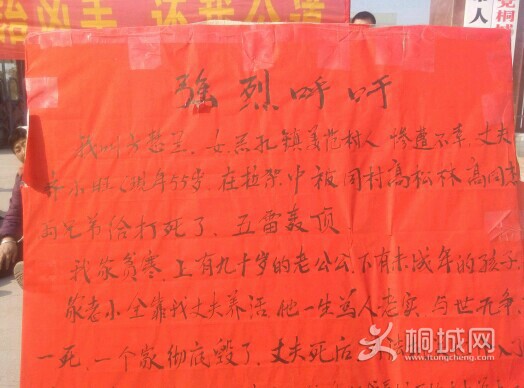 治凶手 还我公道
人
党桐城
强烈呼吁
我叫方 兰，女，孔镇美范村人，惨遭不幸，丈夫
现年55岁，在拉架中被同村高松林、高同
的兄弟给打死了，五雷轰顶。
我家贫寒，上有九十岁的老公公，下有未成年的孩子，
家老小全靠我丈夫养活，他一生为人老实，与世无争，
一死，一个家彻底毁了，丈夫死后
桐城网
www.itongcheng.com